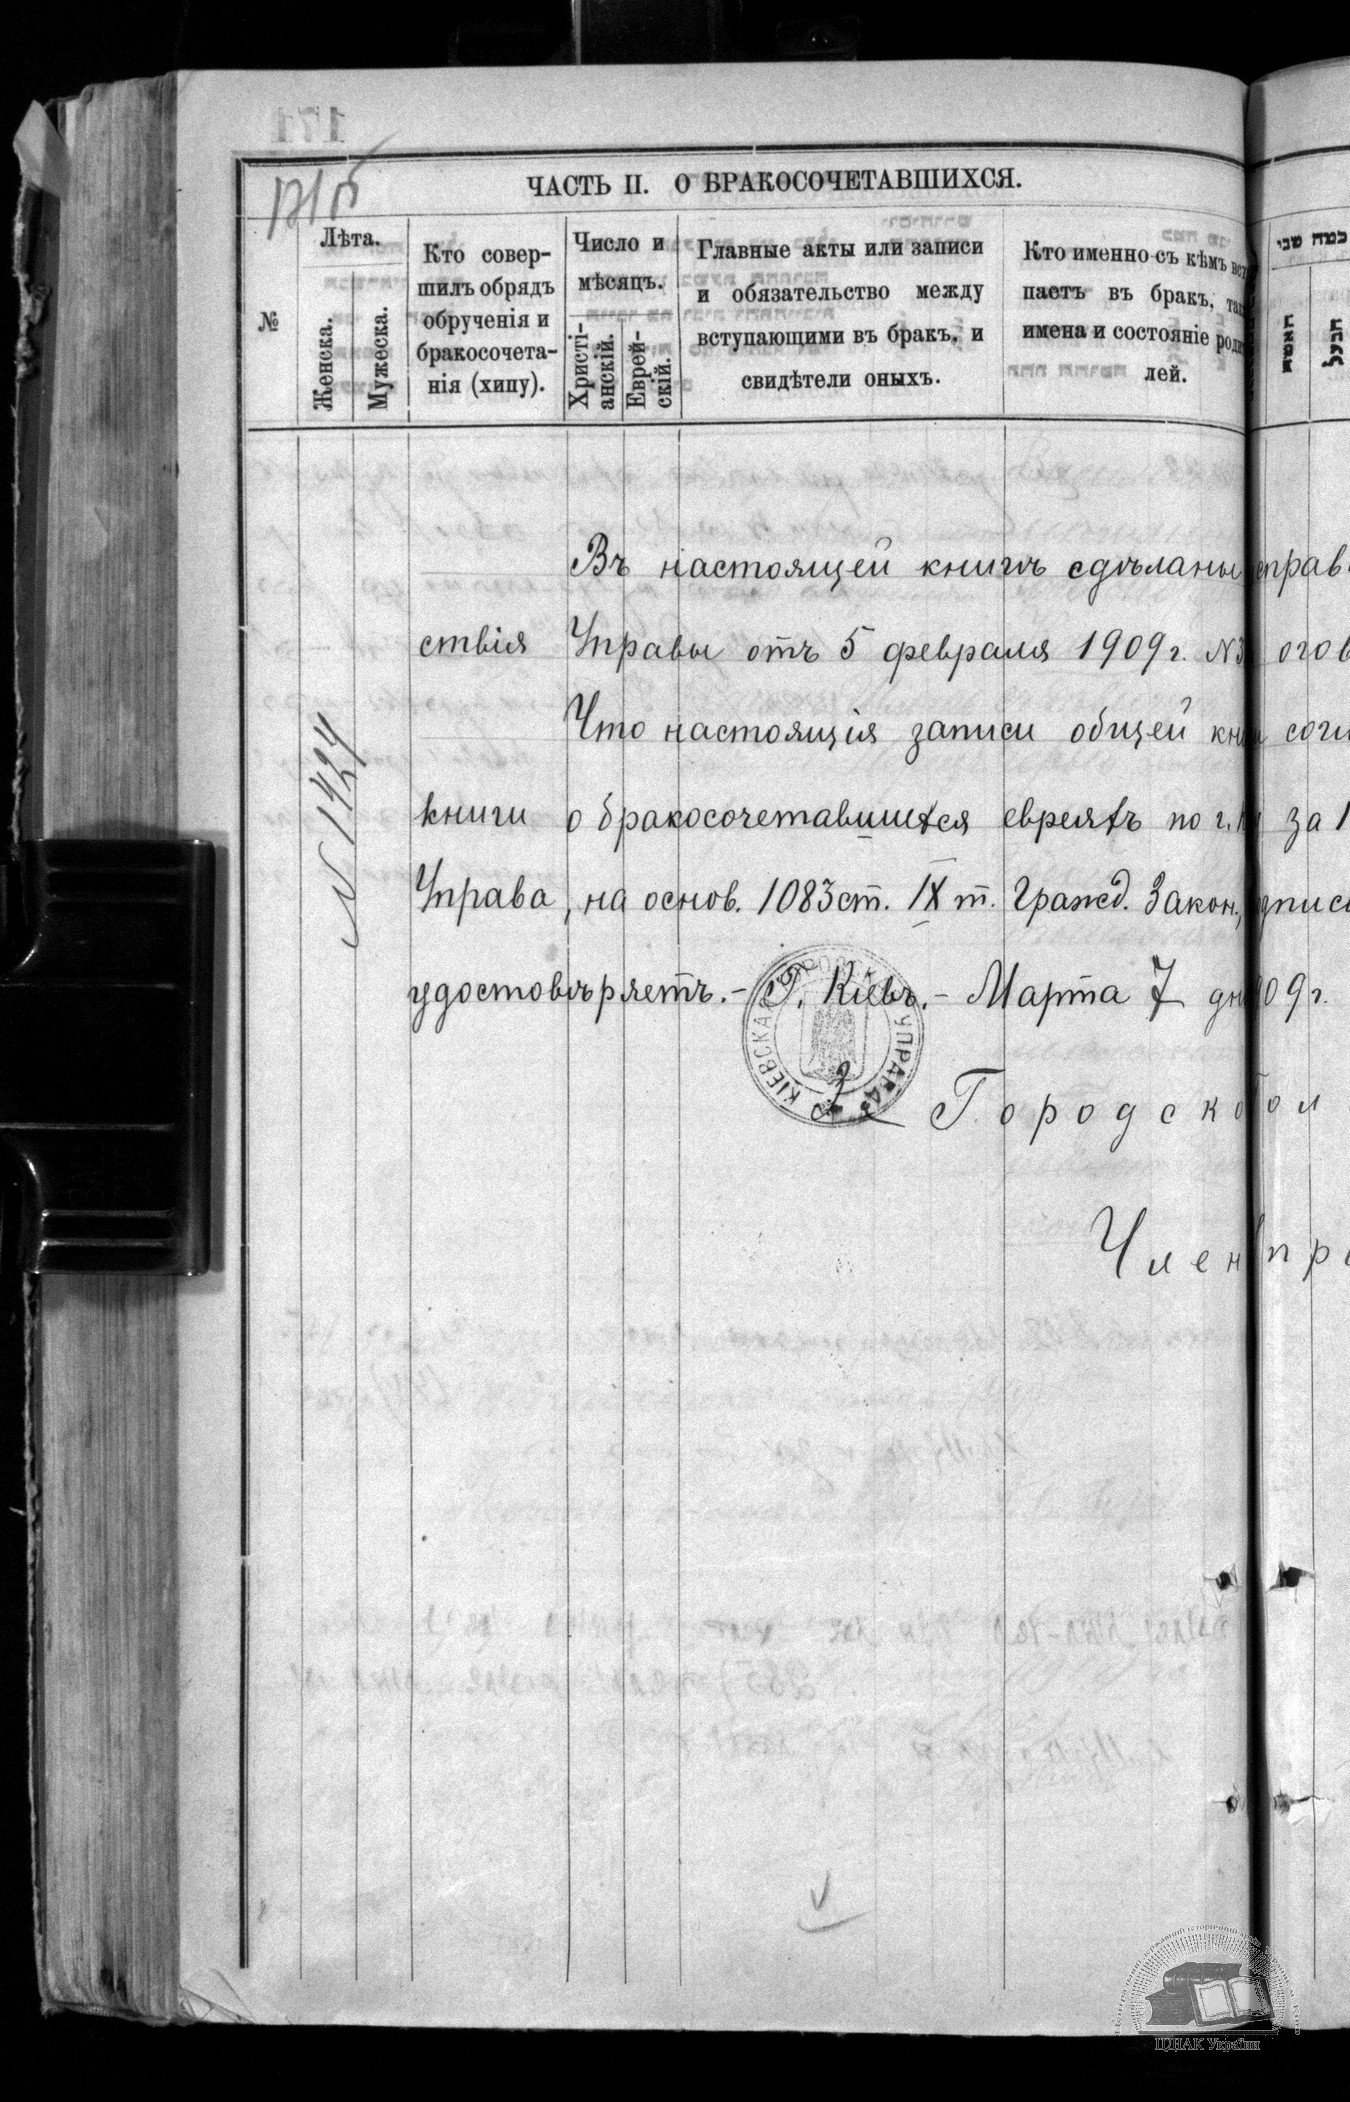 171об
ЧАСТЬ II. О БРАКОСОЧЕТАВШИХСЯ.
№
Лѣта.
Женска.
Мужеска.
Кто совер-
шилъ обрядъ
обрученія и
бракосочета-
нія (хипу).
Число и
мѣсяцъ.
Христі-
анскій.
Еврей-
скій.
Главные акты или записи
и обязательство между
вступающими въ бракъ, и
свидѣтели оныхъ.
Кто именно съ кѣмъ вст
паетъ въ бракъ, так
имена и состояніе роди
лей.
כמה שני
האשה
הבעל
Въ настоящей книгѣ сдѣланы справ
ствія Управы отъ 5 февраля 1909 г. № 3 огов
Что настоящія записи общей кни согл
книги о бракосочетавшихся евреяхъ по г. К за 1
Управа, на основ. 1083 ст. IX т. Гражд. Закон., дпис
удостовѣряетъ. – Г. Кіевъ. – Марта 7 дн 909 г.
Городско Гол
Член пра
№ 1424
КІЕВСКАЯ ГОРОДСКАЯ УПРАВА
ЦДІАК України